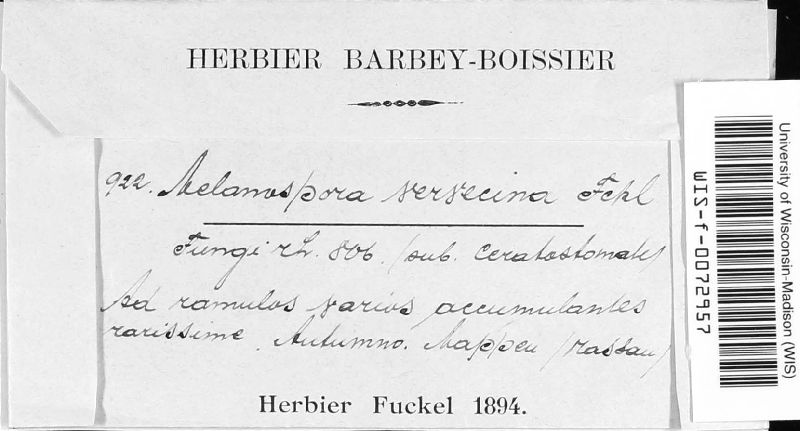 HERBIER BARBEY-BOISSIER
922. Melanospora vervecina Fckl
Fungi rh. 806. (sub. Ceratostomate)
Ad ramulos varios accumulantes
rarissime, Autumno. Mappen (Nassau)
Herbier Fuckel 1894.
University of Wisconsin-Madison (WIS)
WIS-f-0072957